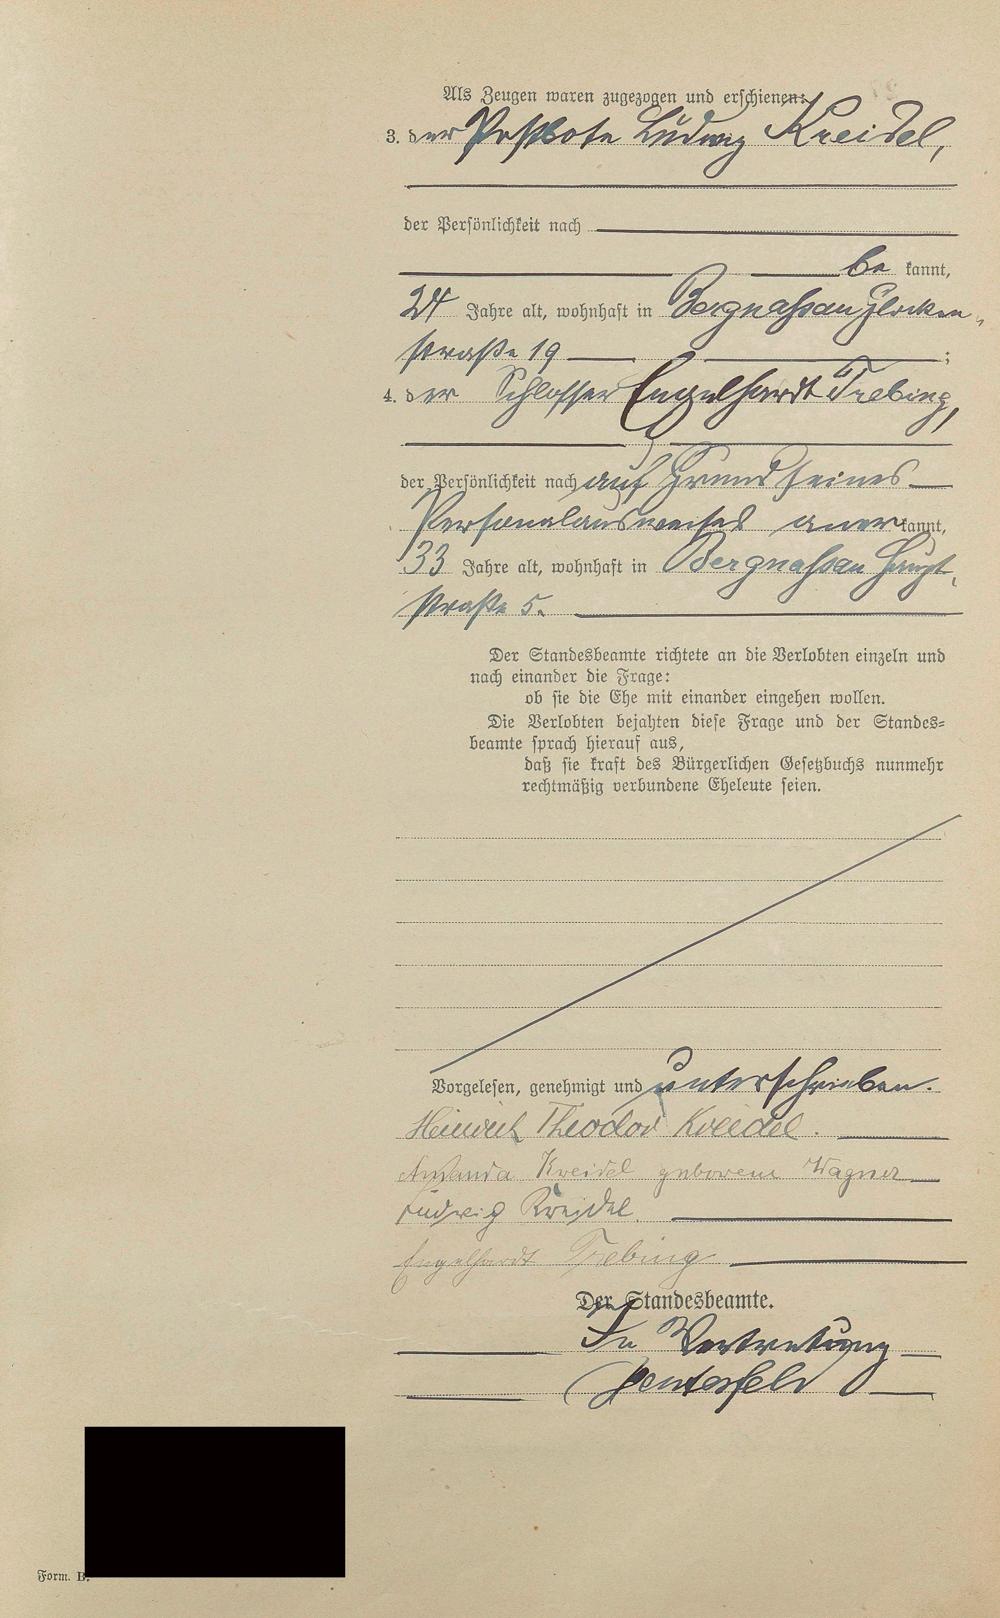 Als Zeugen waren zugezogen und erschienen:
3. der Postbote Ludwig Kreidel,
der Persönlichkeit nach
be kannt,
24 Jahre alt, wohnhaft in Bergnassau Glocken-
straße 19 ;
4. der Schlosser Engelhardt Trebing,
der Persönlichkeit nach auf Grund seines
Personalausweises aner kannt,
33 Jahre alt, wohnhaft in Bergnassau Haupt-
straße 5.
Der Standesbeamte richtete an die Verlobten einzeln und
nach einander die Frage:
ob sie die Ehe mit einander eingehen wollen.
Die Verlobten bejahten diese Frage und der Standes-
beamte sprach hierauf aus,
daß sie kraft des Bürgerlichen Gesetzbuchs nunmehr
rechtmäßig verbundene Eheleute seien.
Vorgelesen, genehmigt und unterschrieben.
Heinrich Theodor Kreidel.
Amanda Kreidel geborene Wagner
Ludwig Kreidel.
Engelhardt Trebing
Der Standesbeamte.
In Vertretung
Form. B.